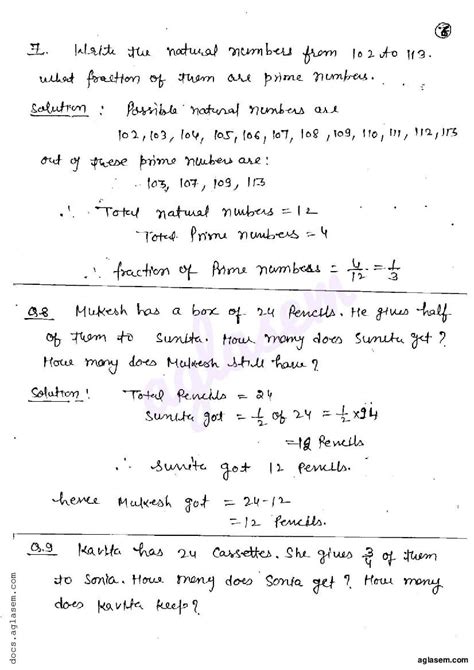 8
7. Write the natural numbers from 102 to 113.
what fraction of them are prime numbers.
Solution : Possible natural numbers are
102, 103, 104, 105, 106, 107, 108, 109, 110, 111, 112, 113
out of these prime numbers are:
103, 107, 109, 113
∴ Total natural numbers = 12
Total Prime numbers = 4
∴ fraction of Prime numbers = 4/12 = 1/3
Q.8 Mukesh has a box of 24 Pencils. He gives half
of them to Sunita. How many does Sunita get ?
How many does Mukesh still have ?
Solution : Total Pencils = 24
Sunita got = 1/2 of 24 = 1/2 x 24
= 12 Pencils
∴ Sunita got 12 Pencils.
hence Mukesh got = 24-12
= 12 Pencils.
Q.9 Kavita has 24 Cassettes. She gives 3/4 of them
to Sonia. How many does Sonia get ? How many
does Kavita keep ?
aglasem
docs.aglasem.com
aglasem.com